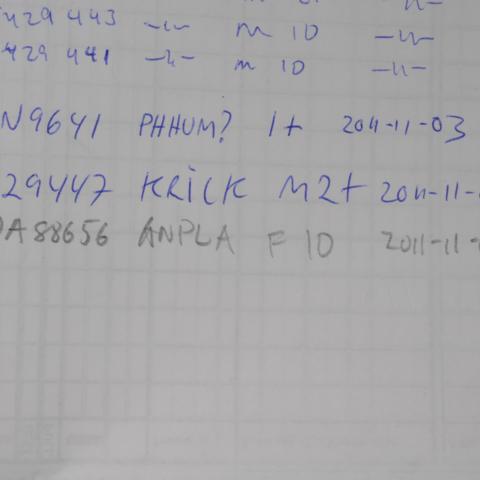 429 443 -"- M 10 -"-
429 441 -"- M 10 -"-
N9641 PHHUM? 1+ 2011-11-03
29447 KRICK M2+ 2011-11-
A88656 ANPLA F 10 2011-11-